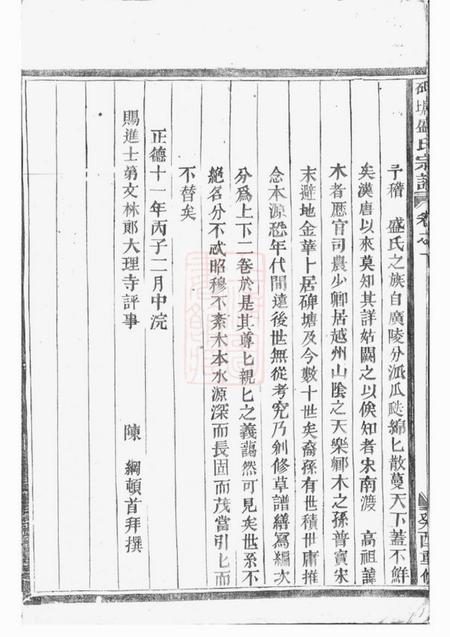 碑塘盛氏宗譜 卷之下
癸酉重修
予稽　盛氏之族自廣陵分派瓜瓞綿匕散蔓天下蓋不鮮
矣漢唐以來莫知其詳姑闕之以俟知者宋南渡　高祖諱
木者歷官司農少卿居越州山陰之天樂鄉木之孫普賓宋
末避地金華卜居碑塘及今數十世矣裔孫有世積世庸推
念本源恐年代間遠後世無從考究乃刱修草譜繕寫編次
分爲上下二卷於是其尊匕親匕之義藹然可見矣世系不
絕名分不忒昭穆不紊木本水源深而長固而茂當引匕而
不替矣
正德十一年丙子二月中浣
賜進士第文林郎大理寺評事　陳　綱頓首拜撰